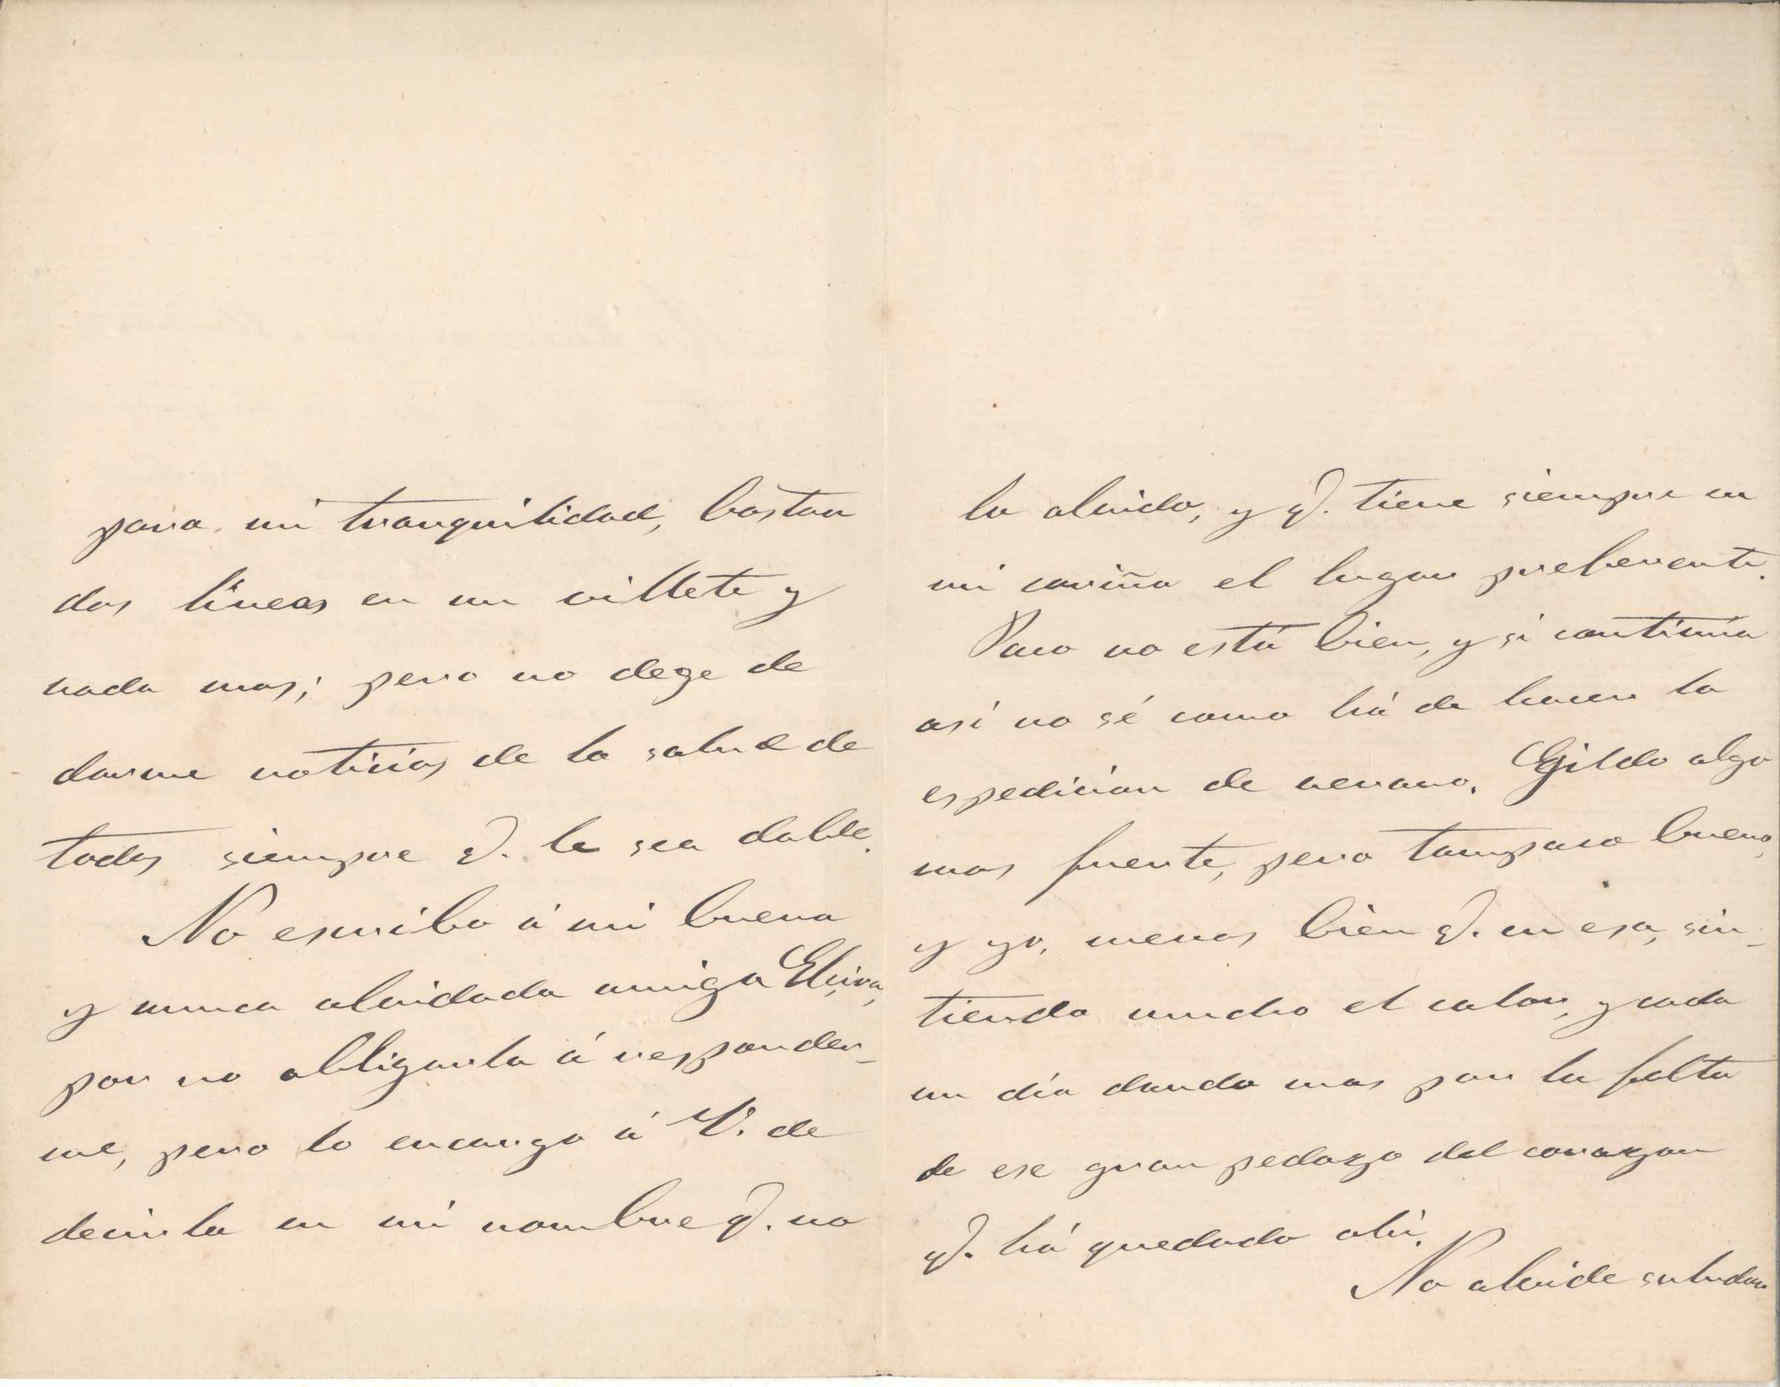 para mi tranquilidad, bastan
dos líneas en un villete y
nada mas; pero no dege de
darme noticias de la salud de
todos siempre q. le sea dable.
No escribo á mi buena
y nunca olvidada amiga Elvira,
por no obligarla á responder-
me, pero lo encargo á V. de
decirla en mi nombre q. no
la olvido, y q. tiene siempre en
mi cariño el lugar preferente.
Paco no está bien, y si continúa
así no sé como há de hacer la
espedicion de verano. Gildo algo
mas fuerte, pero tampoco bueno,
y yo, menos bien q. en esa, sin-
tiendo mucho el calor, y cada
un día dando mas por la falta
de ese gran pedazo del corazon
q. há quedado ahí.
No olvide saludar